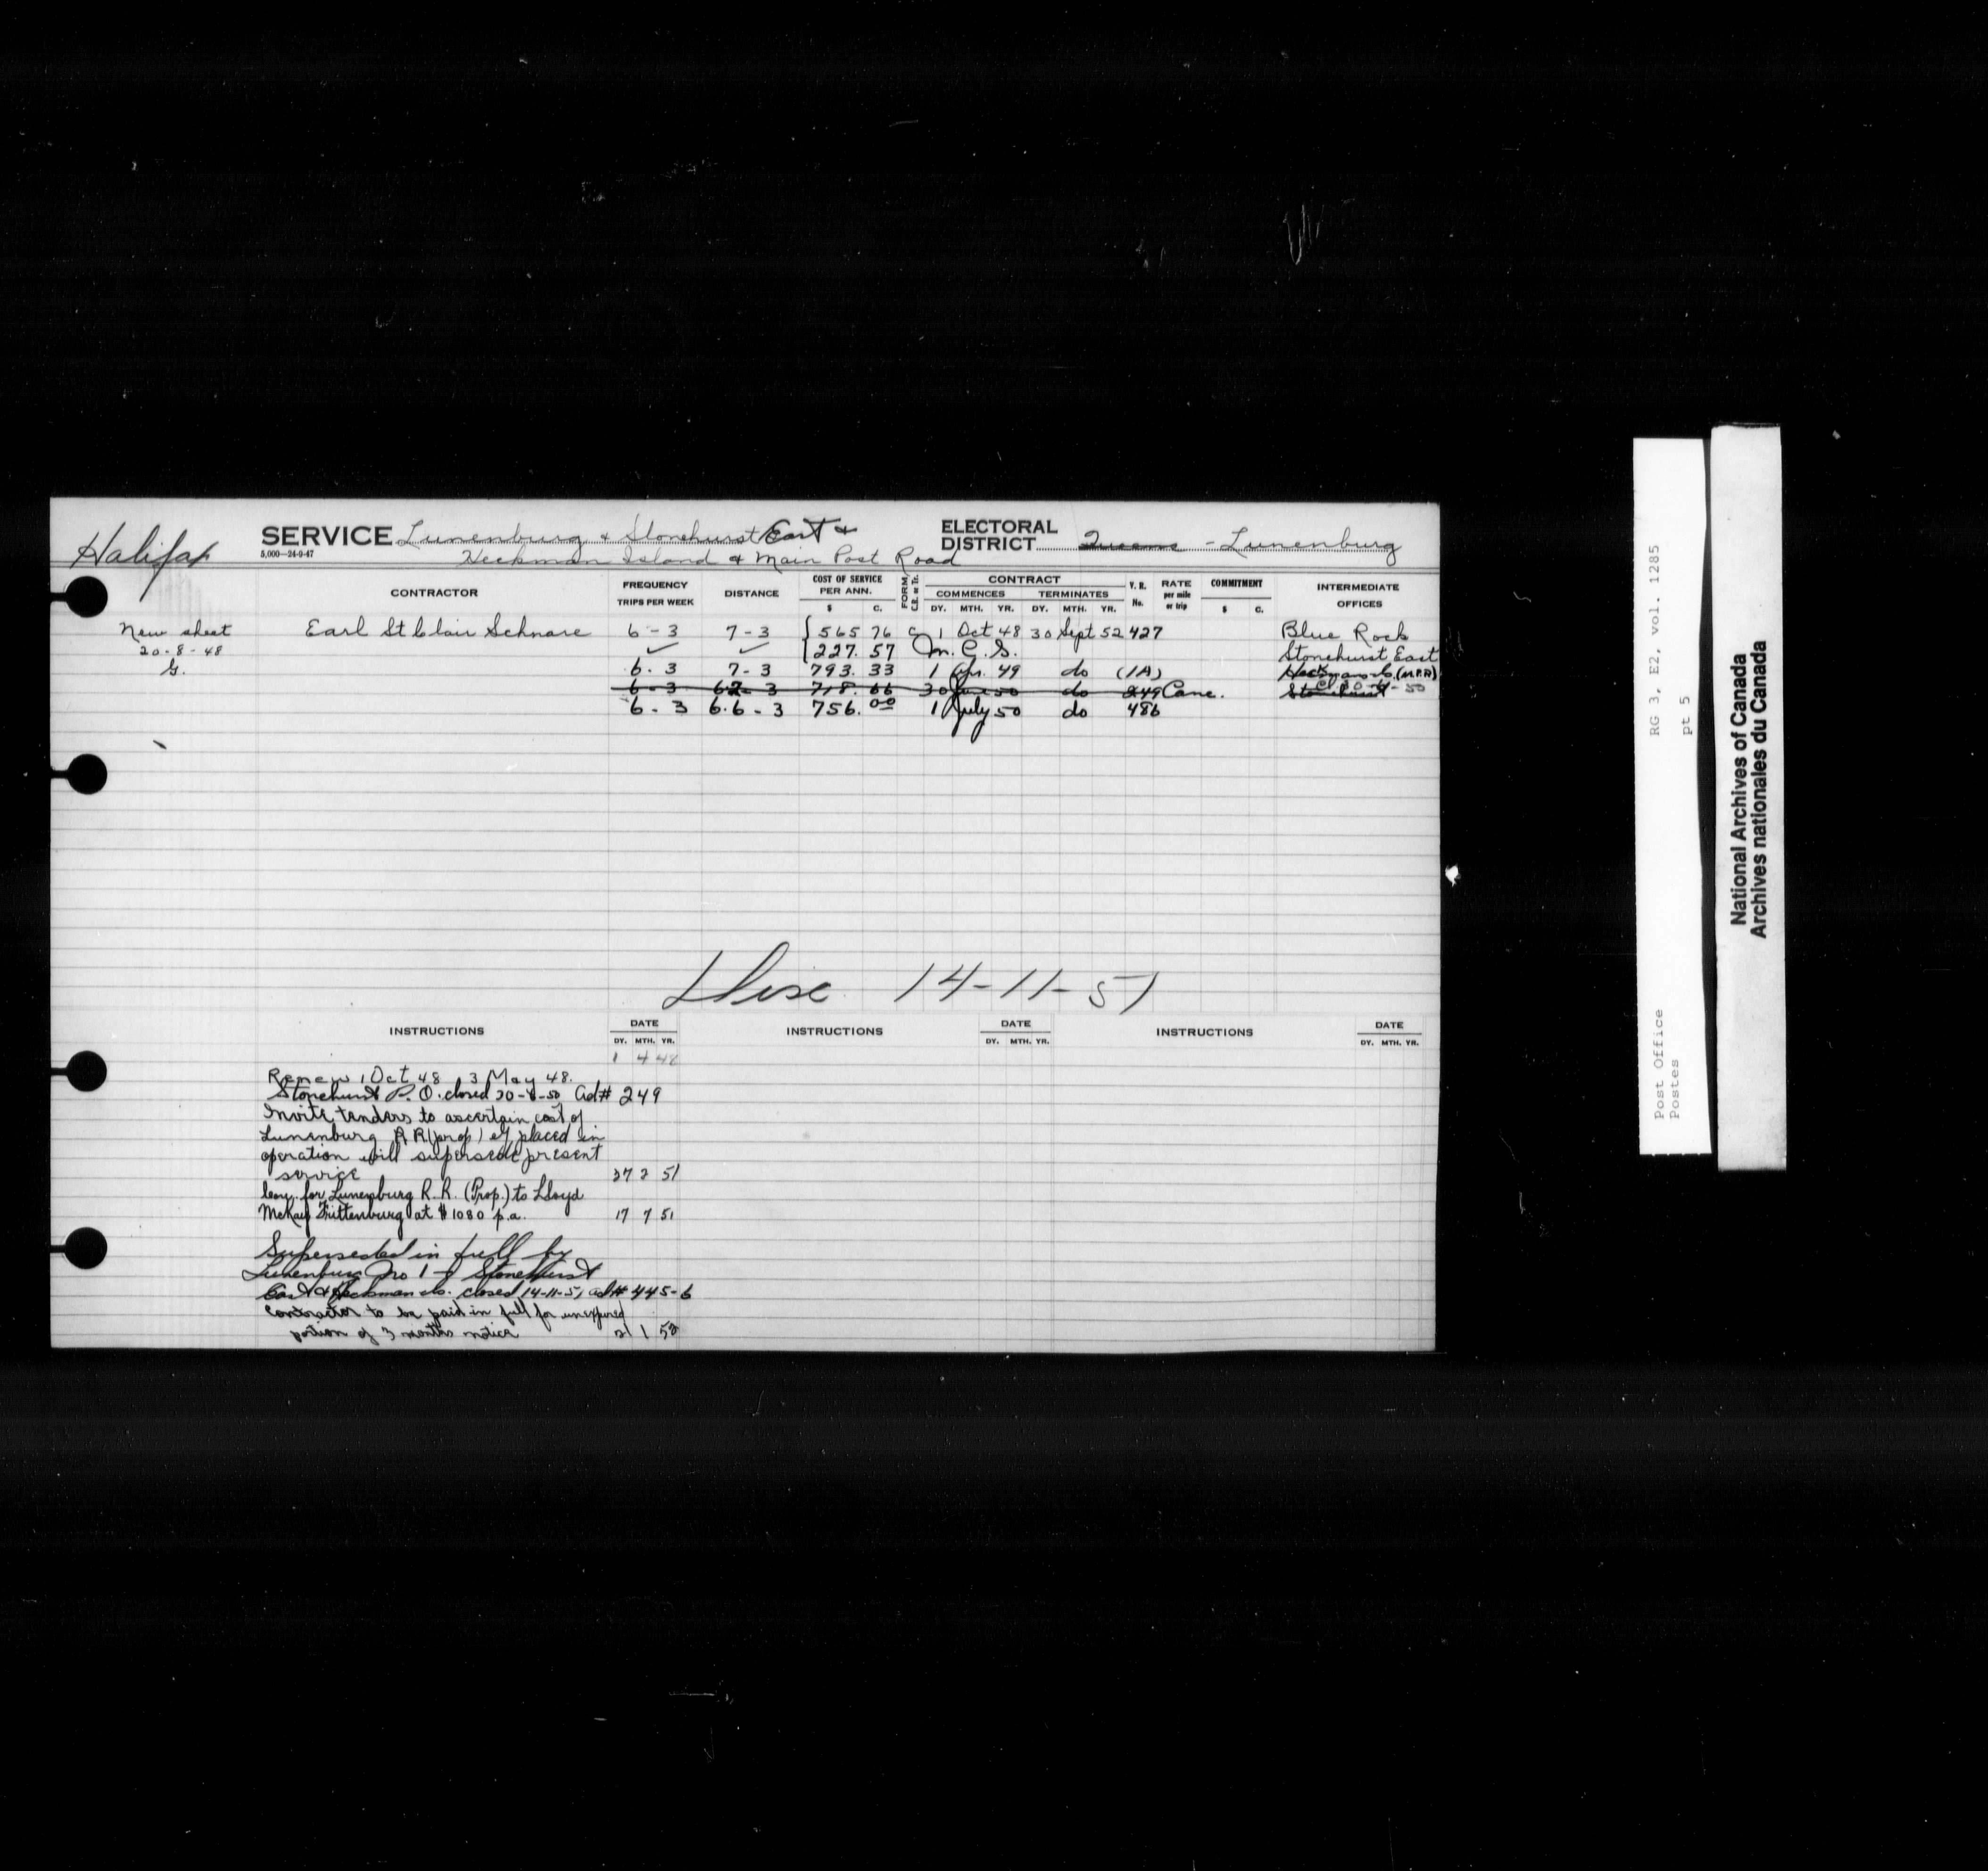 Halifax
SERVICE Lunenburg & Stonehurst East &
5,000—24-9-47
Heckman Island & Main Post Road
ELECTORAL
DISTRICT Queens - Lunenburg
CONTRACTOR
FREQUENCY
TRIPS PER WEEK
DISTANCE
COST OF SERVICE
PER ANN.
$ C.
FORM
C.R. or Tr.
CONTRACT
COMMENCES TERMINATES
DY. MTH. YR. DY. MTH. YR.
V. R.
No.
RATE
per mile
or trip
COMMITMENT
$ C.
INTERMEDIATE
OFFICES
New sheet
20-8-48
G.
Earl St Clair Schnare 6-3 7-3 565 76 C 1 Oct 48 30 Sept 52 427 Blue Rock
227.57 M.C.S. Stonehurst East
6.3 7-3 793.33 1 Apr. 49 do (1A) (M.P.R)
6-3 62-3 718.66 30 June 50 do 249 Canc. Stonehurst
6-3 6.6-3 756.00 1 July 50 do 486
Disc 14-11-51
INSTRUCTIONS
DATE
DY. MTH. YR.
INSTRUCTIONS
DATE
DY. MTH. YR.
INSTRUCTIONS
DATE
DY. MTH. YR.
1 4 48
Renew 1 Oct 48 3 May 48.
Stonehurst P.O. closed Ad# 249
Invite tenders to ascertain cost of
Lunenburg R R (prop) if placed in
operation will supersede present
service 27 2 51
for Lunenburg R.R. (Prop.) to Lloyd
McKay Tuttenburg at $1080 p.a. 17 7 51
Superseded in full by
Lunenburg No 1 & Stonehurst
East & Heckman Is. closed 14-11-51 ad# 445-6
Contractor to be paid in full for unexpired
portion of 3 months notice 21 1 52
RG 3, E2, vol. 1285
pt 5
Post Office
Postes
National Archives of Canada
Archives nationales du Canada